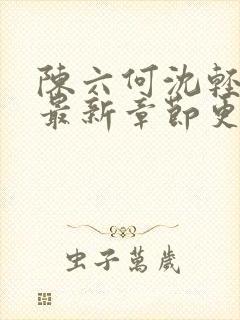 陳六何沈輕
最新章節更
虫子萬歲